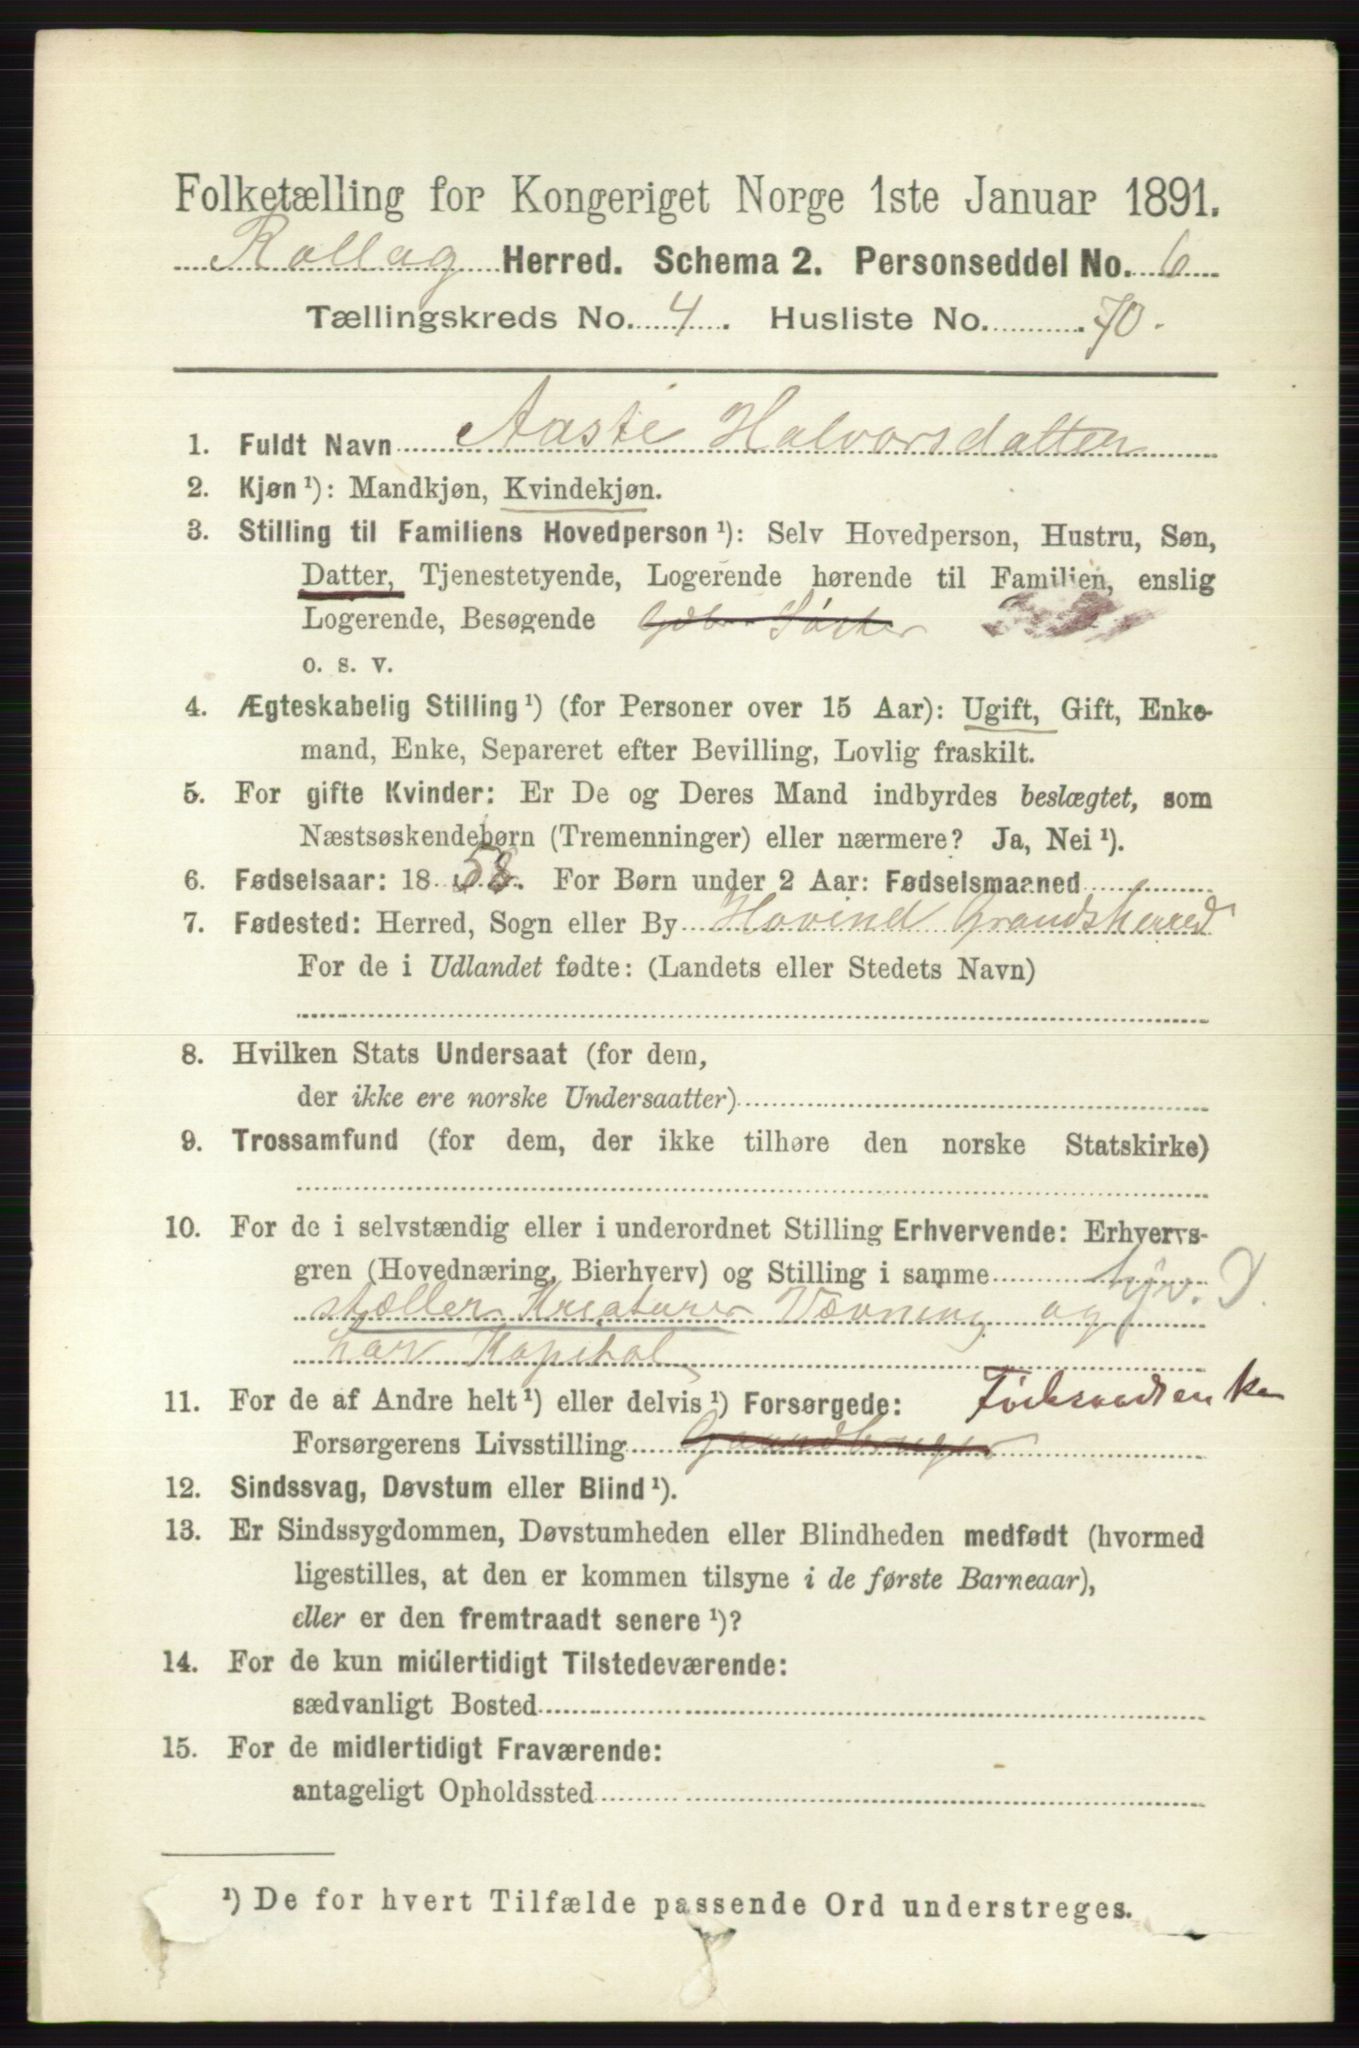 Folketælling for Kongeriget Norge 1ste Januar 1891.
Rollag Herred. Schema 2. Personseddel No. 6
Tællingskreds No. 4. Husliste No. 70.
1. Fuldt Navn Aaste Halvorsdatter
2. Kjøn ¹): Mandkjøn, Kvindekjøn.
3. Stilling til Familiens Hovedperson ¹): Selv Hovedperson, Hustru, Søn,
Datter, Tjenestetyende, Logerende hørende til Familien, enslig
Logerende, Besøgende
o. s. v.
4. Ægteskabelig Stilling ¹) (for Personer over 15 Aar): Ugift, Gift, Enke-
mand, Enke, Separeret efter Bevilling, Lovlig fraskilt.
5. For gifte Kvinder: Er De og Deres Mand indbyrdes beslægtet, som
Næstsøskendebørn (Tremenninger) eller nærmere? Ja, Nei ¹).
6. Fødselsaar: 1858. For Børn under 2 Aar: Fødselsmaaned
7. Fødested: Herred, Sogn eller By Hovind Grandsherred
For de i Udlandet fødte: (Landets eller Stedets Navn)
8. Hvilken Stats Undersaat (for dem,
der ikke ere norske Undersaatter)
9. Trossamfund (for dem, der ikke tilhøre den norske Statskirke)
10. For de i selvstændig eller i underordnet Stilling Erhvervende: Erhvervs-
gren (Hovednæring, Bierhverv) og Stilling i samme
stæller Kreaturer Vævning og
har Kapital
11. For de af Andre helt ¹) eller delvis ¹) Forsørgede:
Forsørgerens Livsstilling Gaardbruger
12. Sindssvag, Døvstum eller Blind ¹).
13. Er Sindssygdommen, Døvstumheden eller Blindheden medfødt (hvormed
ligestilles, at den er kommen tilsyne i de første Barneaar),
eller er den fremtraadt senere ¹)?
14. For de kun midlertidigt Tilstedeværende:
sædvanligt Bosted
15. For de midlertidigt Fraværende:
antageligt Opholdssted
¹) De for hvert Tilfælde passende Ord understreges.